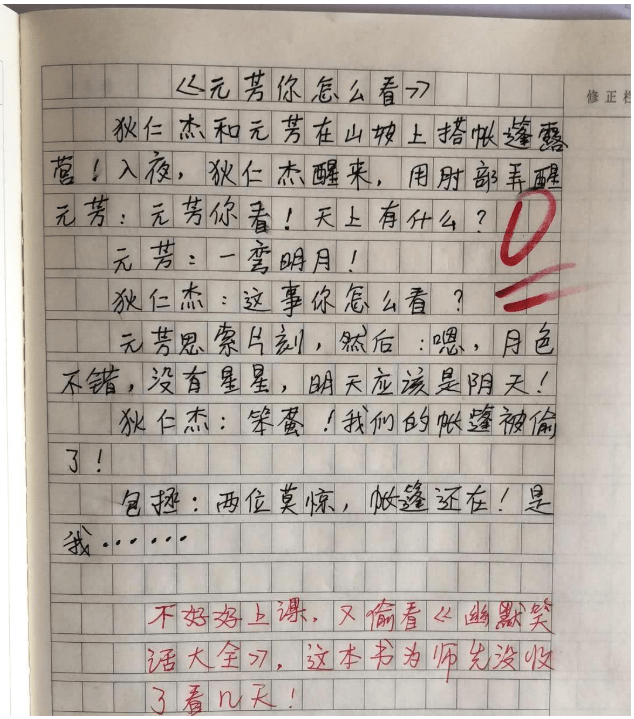 《元芳你怎么看》
修正栏
狄仁杰和元芳在山坡上搭帐蓬露
营！入夜，狄仁杰醒来，用肘部弄醒
元芳：元芳你看！天上有什么？
0
元芳：一弯明月！
狄仁杰：这事你怎么看？
元芳思索片刻，然后：嗯，月色
不错，没有星星，明天应该是阴天！
狄仁杰：笨蛋！我们的帐蓬被偷
了！
包拯：两位莫惊，帐蓬还在！是
我······
不好好上课，又偷看《幽默笑
话大全》，这本书为师先没收
了看几天！